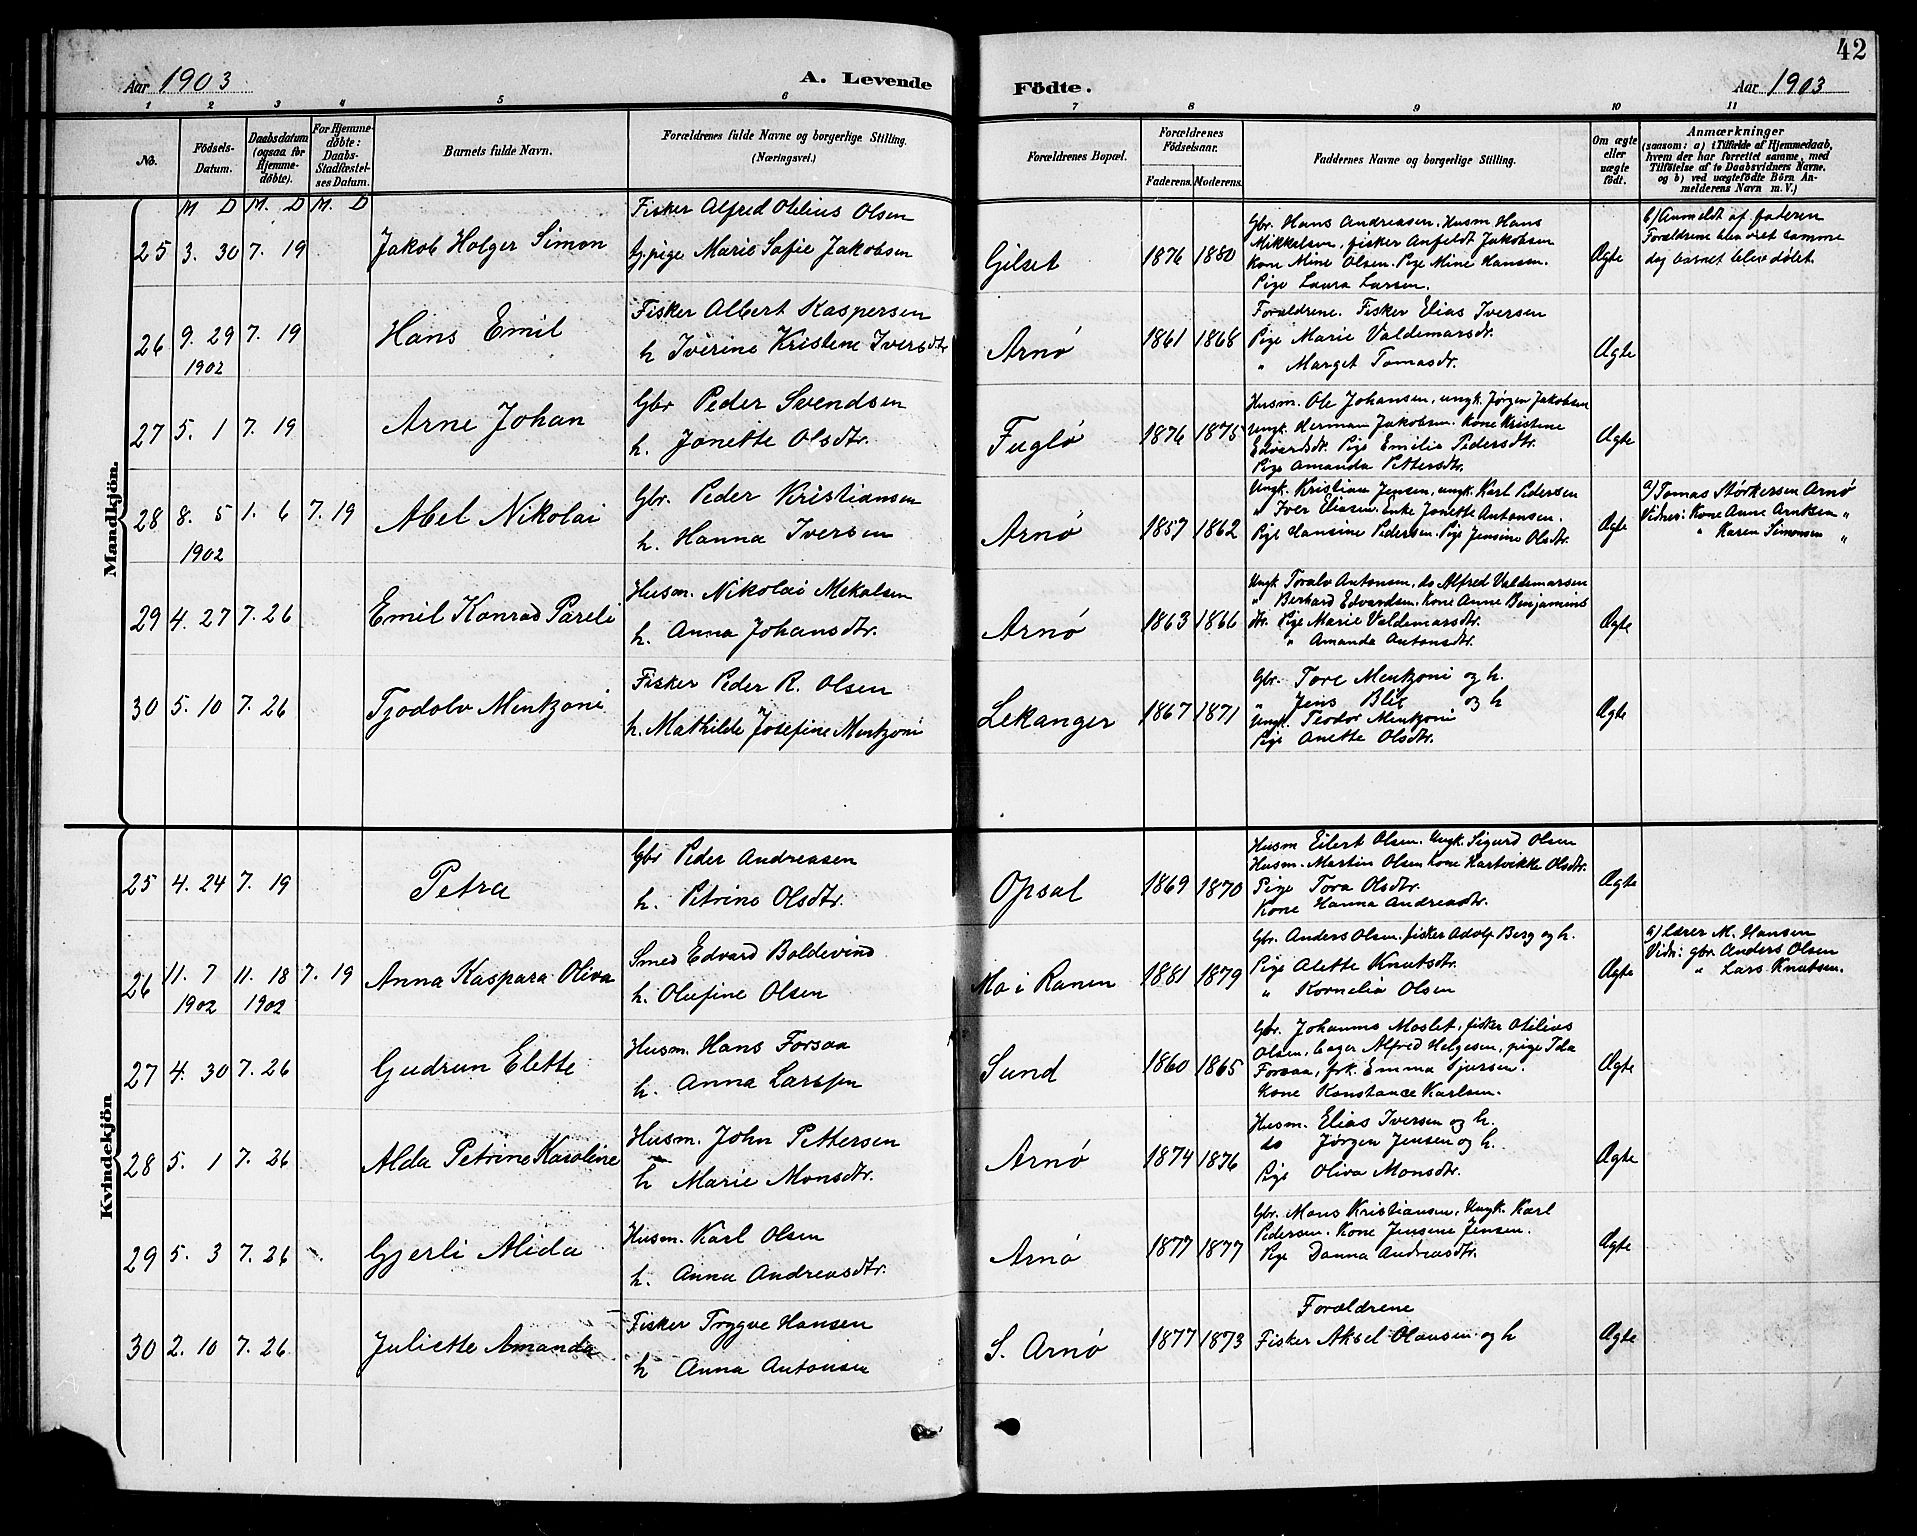 42
Aar 1903
A. Levende
Födte.
Aar 1903
1 2 3 4 5 6 7 8 9 10 11
No.
Födsels-
Datum.
Daabsdatum
(ogsaa for
Hjemme-
döbte).
For Hjemme-
döbte:
Daabs-
Stadfæstel-
ses Datum.
Barnets fulde Navn.
Forældrenes fulde Navne og borgerlige Stilling.
(Næringsvei.)
Forældrenes Bopæl.
Forældrenes
Födselsaar.
Faderens. Moderens.
Faddernes Navne og borgerlige Stilling.
Om ægte
eller
uægte
födt.
Anmærkninger
(saasom: a) i Tilfælde af Hjemmedaab,
hvem der har forrettet samme, med
Tilföielse af to Daabsvidners Navne,
og b) ved uægtefödte Börn An-
melderens Navn m. V.)
Mandkjön.
M D M. D M. D
25 3. 30 7. 19
Jakob Holger Simon
Fisker Alfred Otilius Olsen
G.pige Marie Sofie Jakobsen
Gilset
1876 1880
Gbr. Hans Andreasen. Husm Hans
Mikkelsen, fisker Anfeldt Jakobsen
Kone Mine Olsen. Pige Mine Hansen.
Pige Laura Larsen.
Ægte
b) Anmeldt af faderen
Forældrene blev viet samme
dag barnet blev døbt.
26 9. 29 7. 19
1902
Hans Emil
Fisker Albert Kaspersen
h Iverine Kristene Iversdtr
Arnø
1861 1868
Forældrene. Fisker Elias Iversen
Pige Marie Valdemarsdtr.
" Marget Tomasdr.
Ægte
27 5. 1 7. 19
Arne Johan
Gbr Peder Svendsen
h. Jonette Olsdtr.
Fuglø
1876 1875
Husm. Ole Johansen, ungk. Jørgen Jakobsen
Ungk. Herman Jakobsen. Kone Kristene
Edvardsdtr. Pige Emilie Pedersdtr.
Pige Amanda Pettersdtr.
Ægte
28 8. 5 1. 6 7. 19
1902
Abel Nikolai
Gbr. Peder Kristiansen
h. Hanna Iversen
Arnø
1857 1862
Ungk. Kristian Jensen, ungk. Karl Pedersen
" Iver Eliasen. Enke Jonette Antonsen.
Pige Hansine Pedersen. Pige Jensine Olsdtr.
Ægte
a) Tomas Størkersen Arnø
Vidner: Kone Anne Arntsen "
" Karen Simonsen "
29 4. 27 7. 26
Emil Konrad Pareli
Husm. Nikolai Mekalsen
h. Anna Johansdtr.
Arnø
1863 1866
Ungk Toralv Antonsen, do Alfred Valdemarsen
" Berhard Edvardsen. Kone Anne Benjamins
dtr. Pige Marie Valdemarsdtr.
" Amanda Antonsdtr.
Ægte
30 5. 10 7. 26
Tjodolv Mentzoni
Fisker Peder R. Olsen
h. Mathilde Josefine Mentzoni
Lekanger
1867 1871
Gbr. Tore Mentzoni og h.
" Jens Blix og h
Ungk. Teodor Mentzoni
Pige Anette Olsdtr.
Ægte
Kvindekjön
25 4. 24 7. 19
Petra
Gbr Peder Andreasen
h. Petrine Olsdtr.
Opsal
1869 1870
Husm Eilert Olsen. Ungk. Sigurd Olsen
Husm. Martin Olsen Kone Hartvikke Olsdtr.
Pige Tora Olsdtr.
Kone Hanna Andreasdtr.
Ægte
26 11. 7 11. 18 7. 19
1902 1902
Anna Kaspara Oliva
Smed Edvard Boldevind
h. Olufine Olsen
Mo i Ranen
1881 1879
Gbr. Anders Olsen. fisker Adolf Berg og h.
Pige Alette Knutsdtr.
" Kornelia Olsen
Ægte
a) Lærer M. Hansen
Vidn: gbr. Anders Olsen
" Lars Knutsen.
27 4. 30 7. 26
Gudrun Elette
Husm. Hans Forsaa
h. Anna Larssen
Sund
1860 1865
Gbr. Johannes Moslet, fisker Otilius
Olsen, bager Alfred Helgesen, pige Ida
Forsaa, frk. Emma Sjursen.
Kone Konstance Karlsen.
Ægte
28 5. 1 7. 26
Alda Petrine Karoline
Husm. John Pettersen
h Marie Monsdtr.
Arnø
1874 1876
Husm. Elias Iversen og h.
do Jørgen Jensen og h.
Pige Oliva Monsdtr.
Ægte
29 5. 3 7. 26
Gjerli Alida
Husm. Karl Olsen
h. Anna Andreasdtr.
Arnø
1877 1877
Gbr. Mons Kristiansen, Ungk. Karl
Pedersen. Kone Jensene Jensen.
Pige Danna Andreasdtr.
Ægte
30 2. 10 7. 26
Juliette Amanda
Fisker Trygve Hansen
h Anna Antonsen
S. Arnø
1877 1873
Forældrene
Fisker Aksel Olausen og h
Ægte